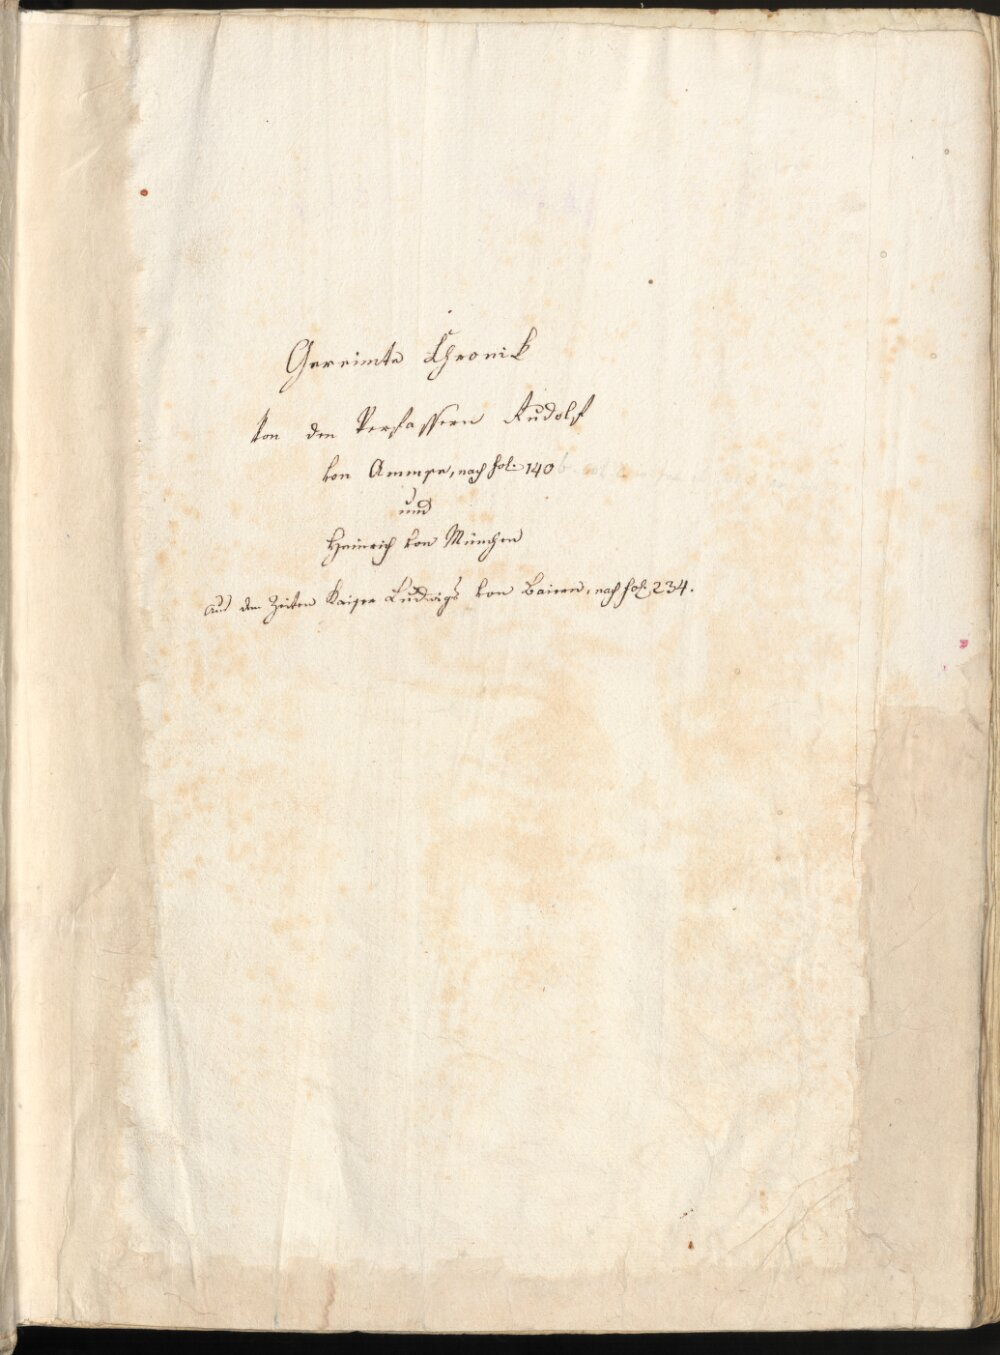 Gereimte Chronik
Von den Verfassern Rudolf
von Ammse, nach fol. 140
und
Heinrich von München
aus den Zeiten Kaiser Ludwigs von Baiern, nach fol. 234.